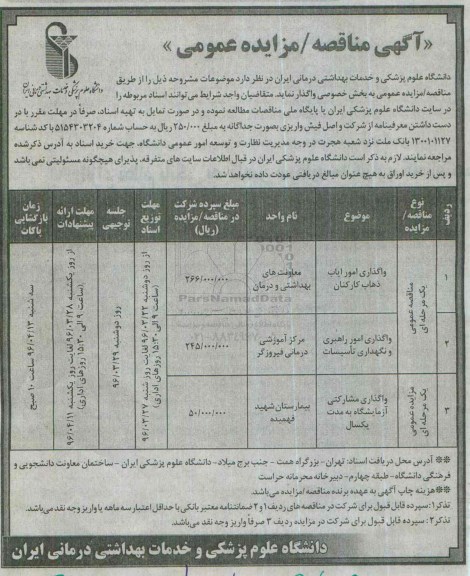 «آگهی مناقصه/مزایده عمومی»
دانشگاه علوم پزشکی و خدمات بهداشتی درمانی ایران
دانشگاه علوم پزشکی و خدمات بهداشتی درمانی ایران در نظر دارد موضوعات مشروحه ذیل را از طریق
مناقصه/مزایده عمومی به بخش خصوصی واگذار نماید. متقاضیان واجد شرایط می‌توانند اسناد مربوطه را
در سایت دانشگاه علوم پزشکی ایران یا پایگاه ملی مناقصات مطالعه نموده و در صورت تمایل به تهیه اسناد، صرفاً در مهلت مقرر با در
دست داشتن معرفینامه از شرکت و اصل فیش واریزی بصورت جداگانه به مبلغ ۲۵۰/۰۰۰ ریال به حساب شماره ۵۱۵۴۳۰۳۲۰۴ با کد شناسه
۱۳۰۰۱۰۱۱۲۷ بانک ملت نزد شعبه هجرت در وجه مدیریت نظارت و توسعه امور عمومی دانشگاه، جهت خرید اسناد به آدرس ذکر شده
مراجعه نمایند. لازم به ذکر است دانشگاه علوم پزشکی ایران در قبال اطلاعات سایت های متفرقه، پذیرای هیچگونه مسئولیتی نمی باشد
و پس از خرید اوراق به هیچ عنوان مبالغ دریافتی عودت داده نخواهد شد.
ردیف
نوع مناقصه/مزایده
موضوع
نام واحد
مبلغ سپرده شرکت در مناقصه/مزایده (ریال)
مهلت توزیع اسناد
جلسه توجیهی
مهلت ارائه پیشنهادات
زمان بازگشایی پاکات
۱
مناقصه عمومی یک مرحله ای
واگذاری امور ایاب ذهاب کارکنان
معاونت های بهداشتی و درمان
۳۶۶/۰۰۰/۰۰۰
از روز دوشنبه ۹۶/۰۳/۲۲ لغایت روز شنبه ۹۶/۰۳/۲۷ (ساعت ۹ الی ۱۵:۳۰ روزهای اداری)
روز دوشنبه ۹۶/۰۳/۲۹
از روز یکشنبه ۹۶/۰۳/۲۸ لغایت روز یکشنبه ۹۶/۰۴/۱۱ (ساعت ۹ الی ۱۵:۳۰ روزهای اداری)
سه شنبه ۹۶/۰۴/۱۳ ساعت ۱۰ صبح
۲
واگذاری امور راهبری و نگهداری تأسیسات
مرکز آموزشی درمانی فیروزگر
۲۴۵/۰۰۰/۰۰۰
۳
مزایده عمومی یک مرحله ای
واگذاری مشارکتی آزمایشگاه به مدت یکسال
بیمارستان شهید فهمیده
۵۰/۰۰۰/۰۰۰
ParsNamadData
** آدرس محل دریافت اسناد: تهران- بزرگراه همت - جنب برج میلاد- دانشگاه علوم پزشکی ایران - ساختمان معاونت دانشجویی و
فرهنگی دانشگاه- طبقه چهارم- دبیرخانه محرمانه حراست
** هزینه چاپ آگهی به عهده برنده مناقصه/مزایده می‌باشد.
تذکر۱: سپرده قابل قبول برای شرکت در مناقصه های ردیف ۱ و ۲ ضمانتنامه معتبر بانکی با حداقل اعتبار سه ماهه یا واریز وجه نقد می‌باشد.
تذکر۲: سپرده قابل قبول برای شرکت در مزایده ردیف ۳ صرفاً واریز وجه نقد می‌باشد.
دانشگاه علوم پزشکی و خدمات بهداشتی درمانی ایران